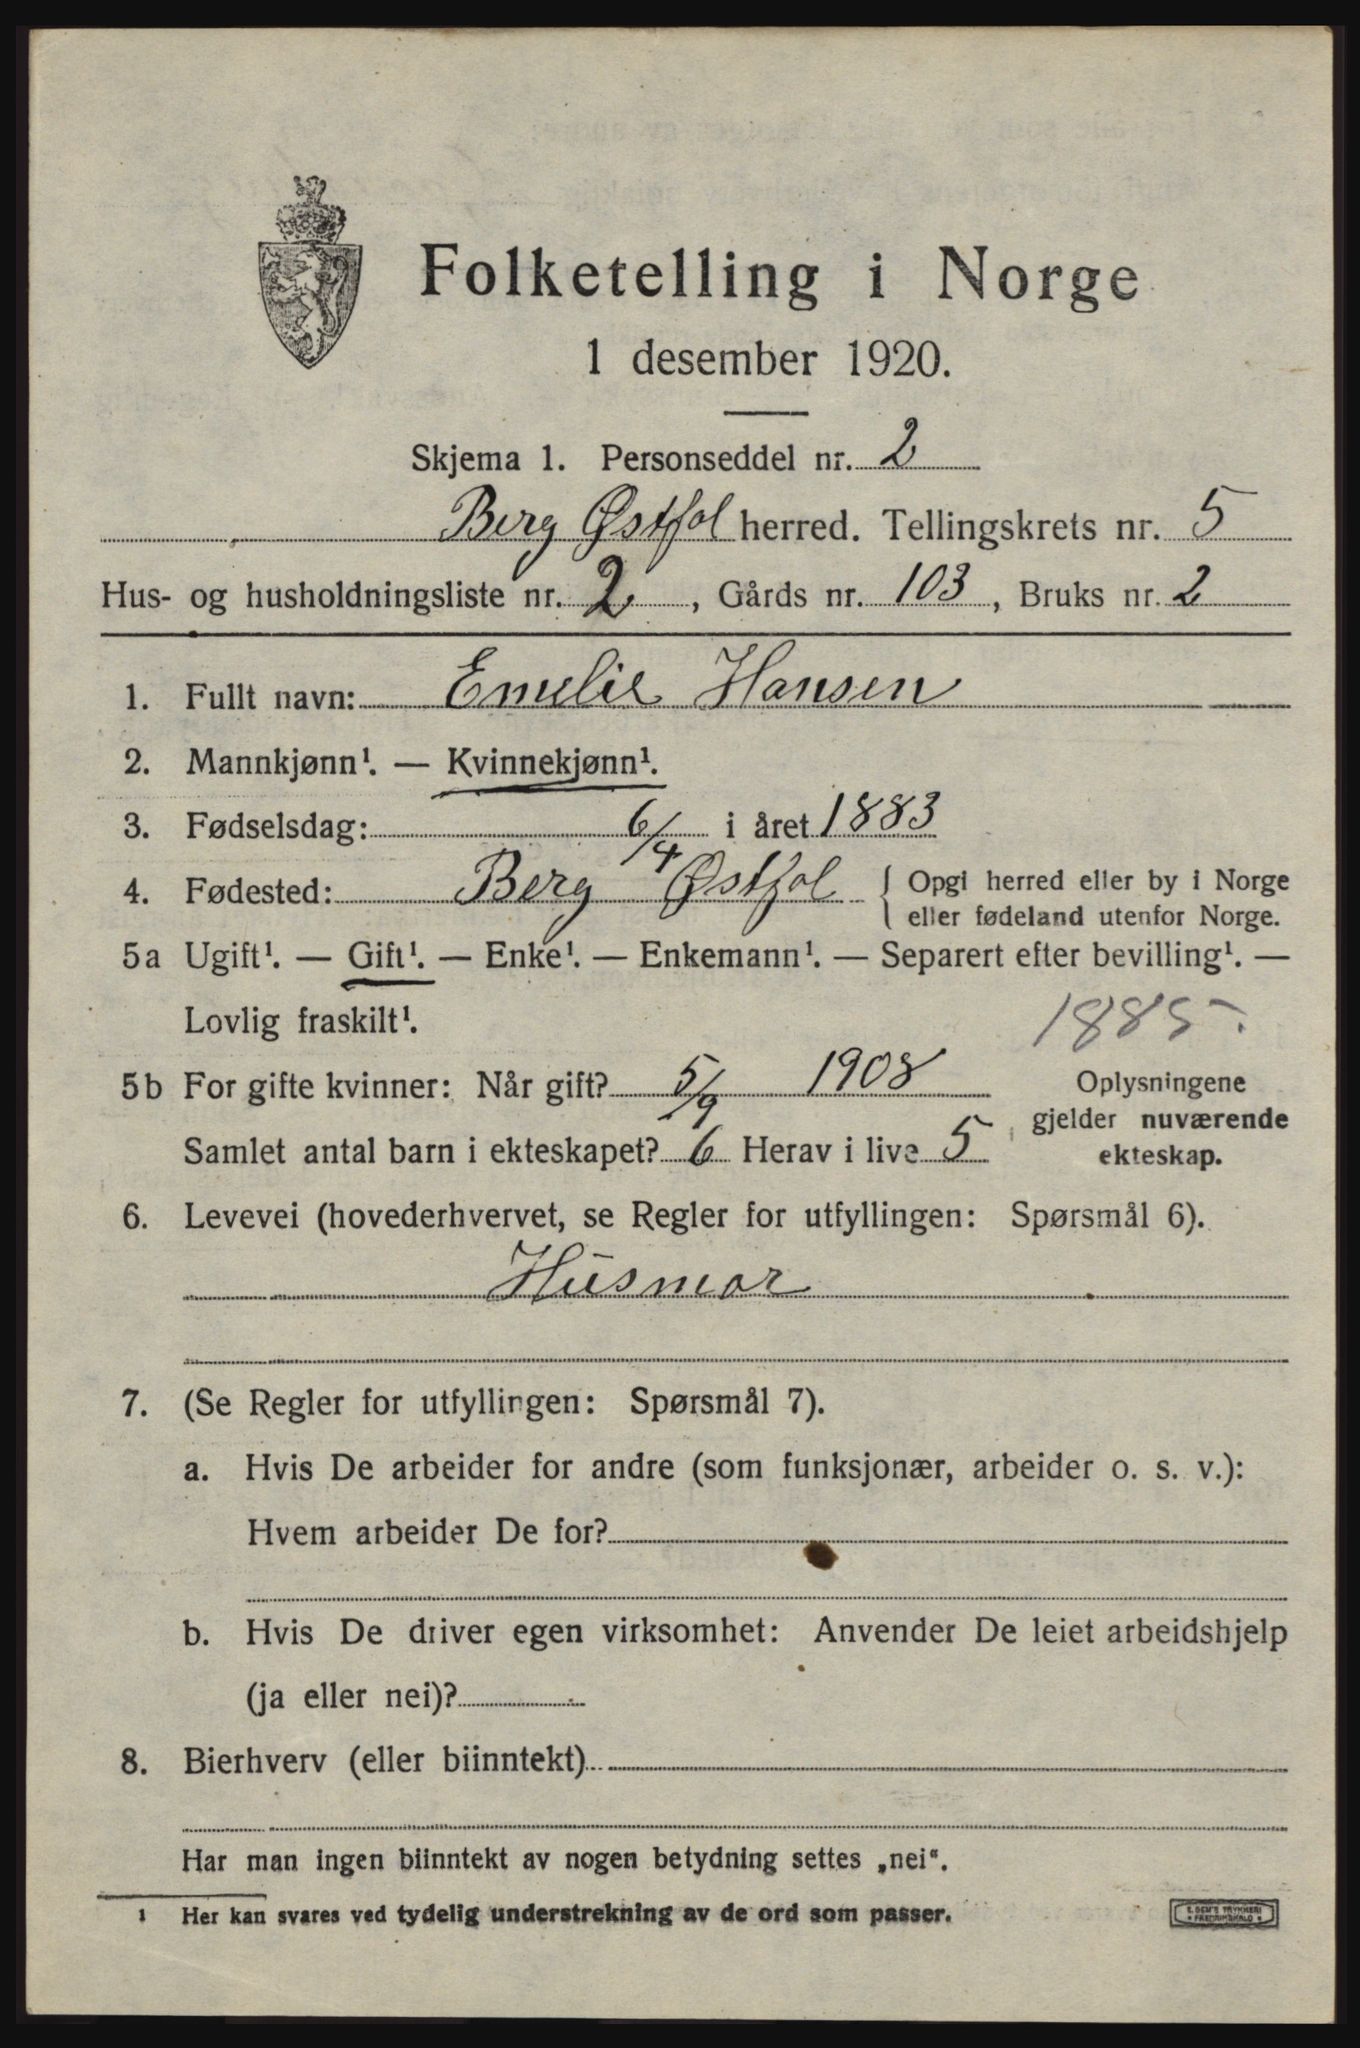 Folketelling i Norge
1 desember 1920.
Skjema 1. Personseddel nr. 2
Berg Østfol herred. Tellingskrets nr. 5
Hus- og husholdningsliste nr. 2, Gårds nr. 103, Bruks nr. 2
1. Fullt navn: Emelie Hansen
2. Mannkjønn¹. — Kvinnekjønn¹.
3. Fødselsdag: 6/4 i året 1883
4. Fødested: Berg Østfol { Opgi herred eller by i Norge
eller fødeland utenfor Norge.
5a Ugift¹. — Gift¹. — Enke¹. — Enkemann¹. — Separert efter bevilling¹. —
Lovlig fraskilt¹.
1885.
5b For gifte kvinner: Når gift? 5/9 1908
Oplysningene
gjelder nuværende
ekteskap.
Samlet antal barn i ekteskapet? 6 Herav i live 5
6. Levevei (hovederhvervet, se Regler for utfyllingen: Spørsmål 6).
Husmor
7. (Se Regler for utfyllingen: Spørsmål 7).
a. Hvis De arbeider for andre (som funksjonær, arbeider o. s. v.):
Hvem arbeider De for?
b. Hvis De driver egen virksomhet: Anvender De leiet arbeidshjelp
(ja eller nei)?
8. Bierhverv (eller biinntekt)
Har man ingen biinntekt av nogen betydning settes „nei“.
¹ Her kan svares ved tydelig understrekning av de ord som passer.
E. SEM'S TRYKKERI
* FREDRIKSHALD *